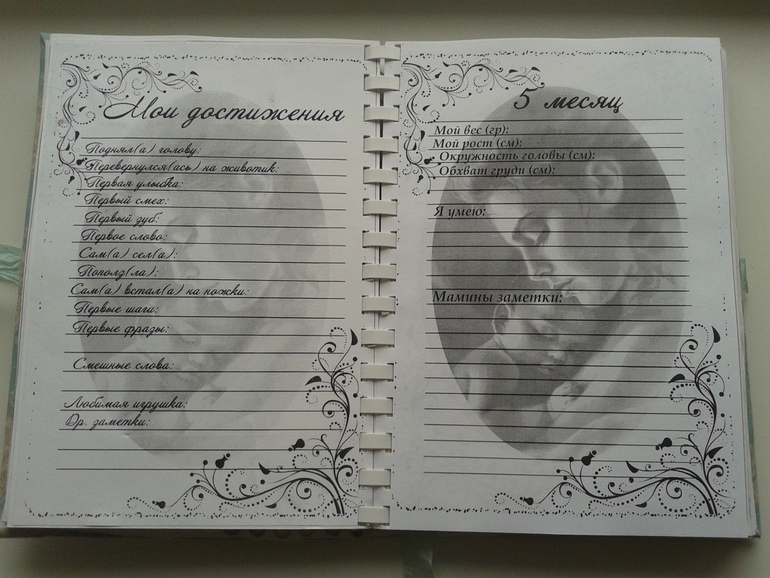 Мои достижения
Поднял(а) голову:
Перевернулся(ась) на животик:
Первая улыбка:
Первый смех:
Первый зуб:
Первое слово:
Сам(а) сел(а):
Пополз(ла):
Сам(а) встал(а) на ножки:
Первые шаги:
Первые фразы:
Смешные слова:
Любимая игрушка:
Др. заметки:
5 месяц
Мой вес (гр):
Мой рост (см):
Окружность головы (см):
Обхват груди (см):
Я умею:
Мамины заметки: